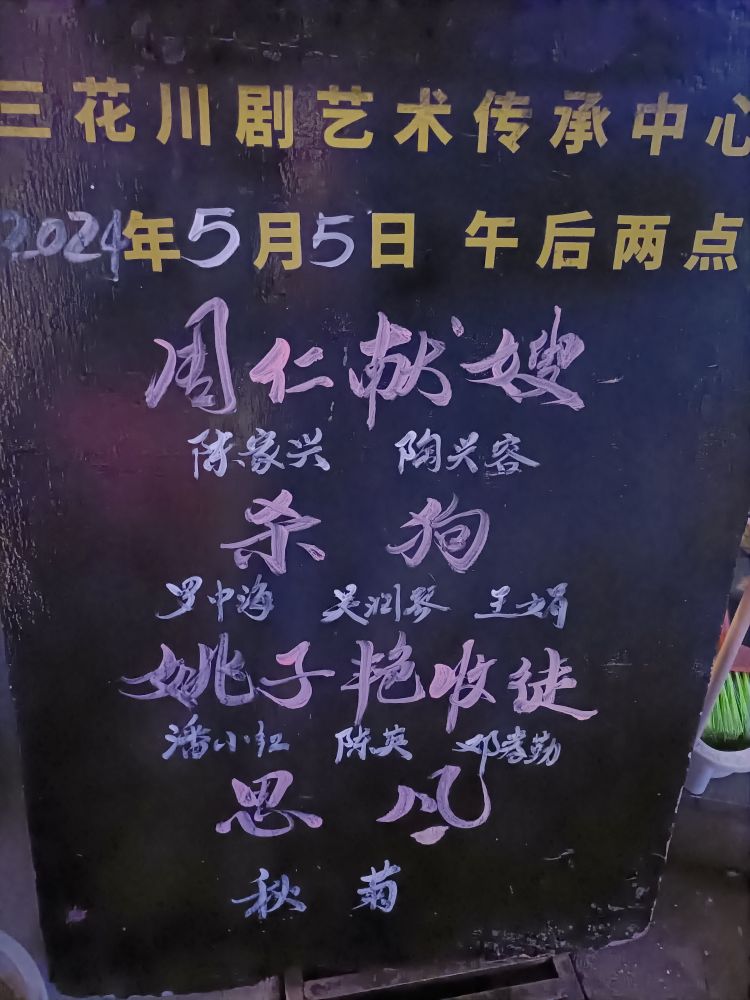 三花川剧艺术传承中心
2024年5月5日 午后两点
周仁献嫂
陈家兴 陶兴容
杀狗
罗中海 吴润琴 王文娟
姚子艳收徒
潘小红 陈英 邓孝勤
思凡
秋菊